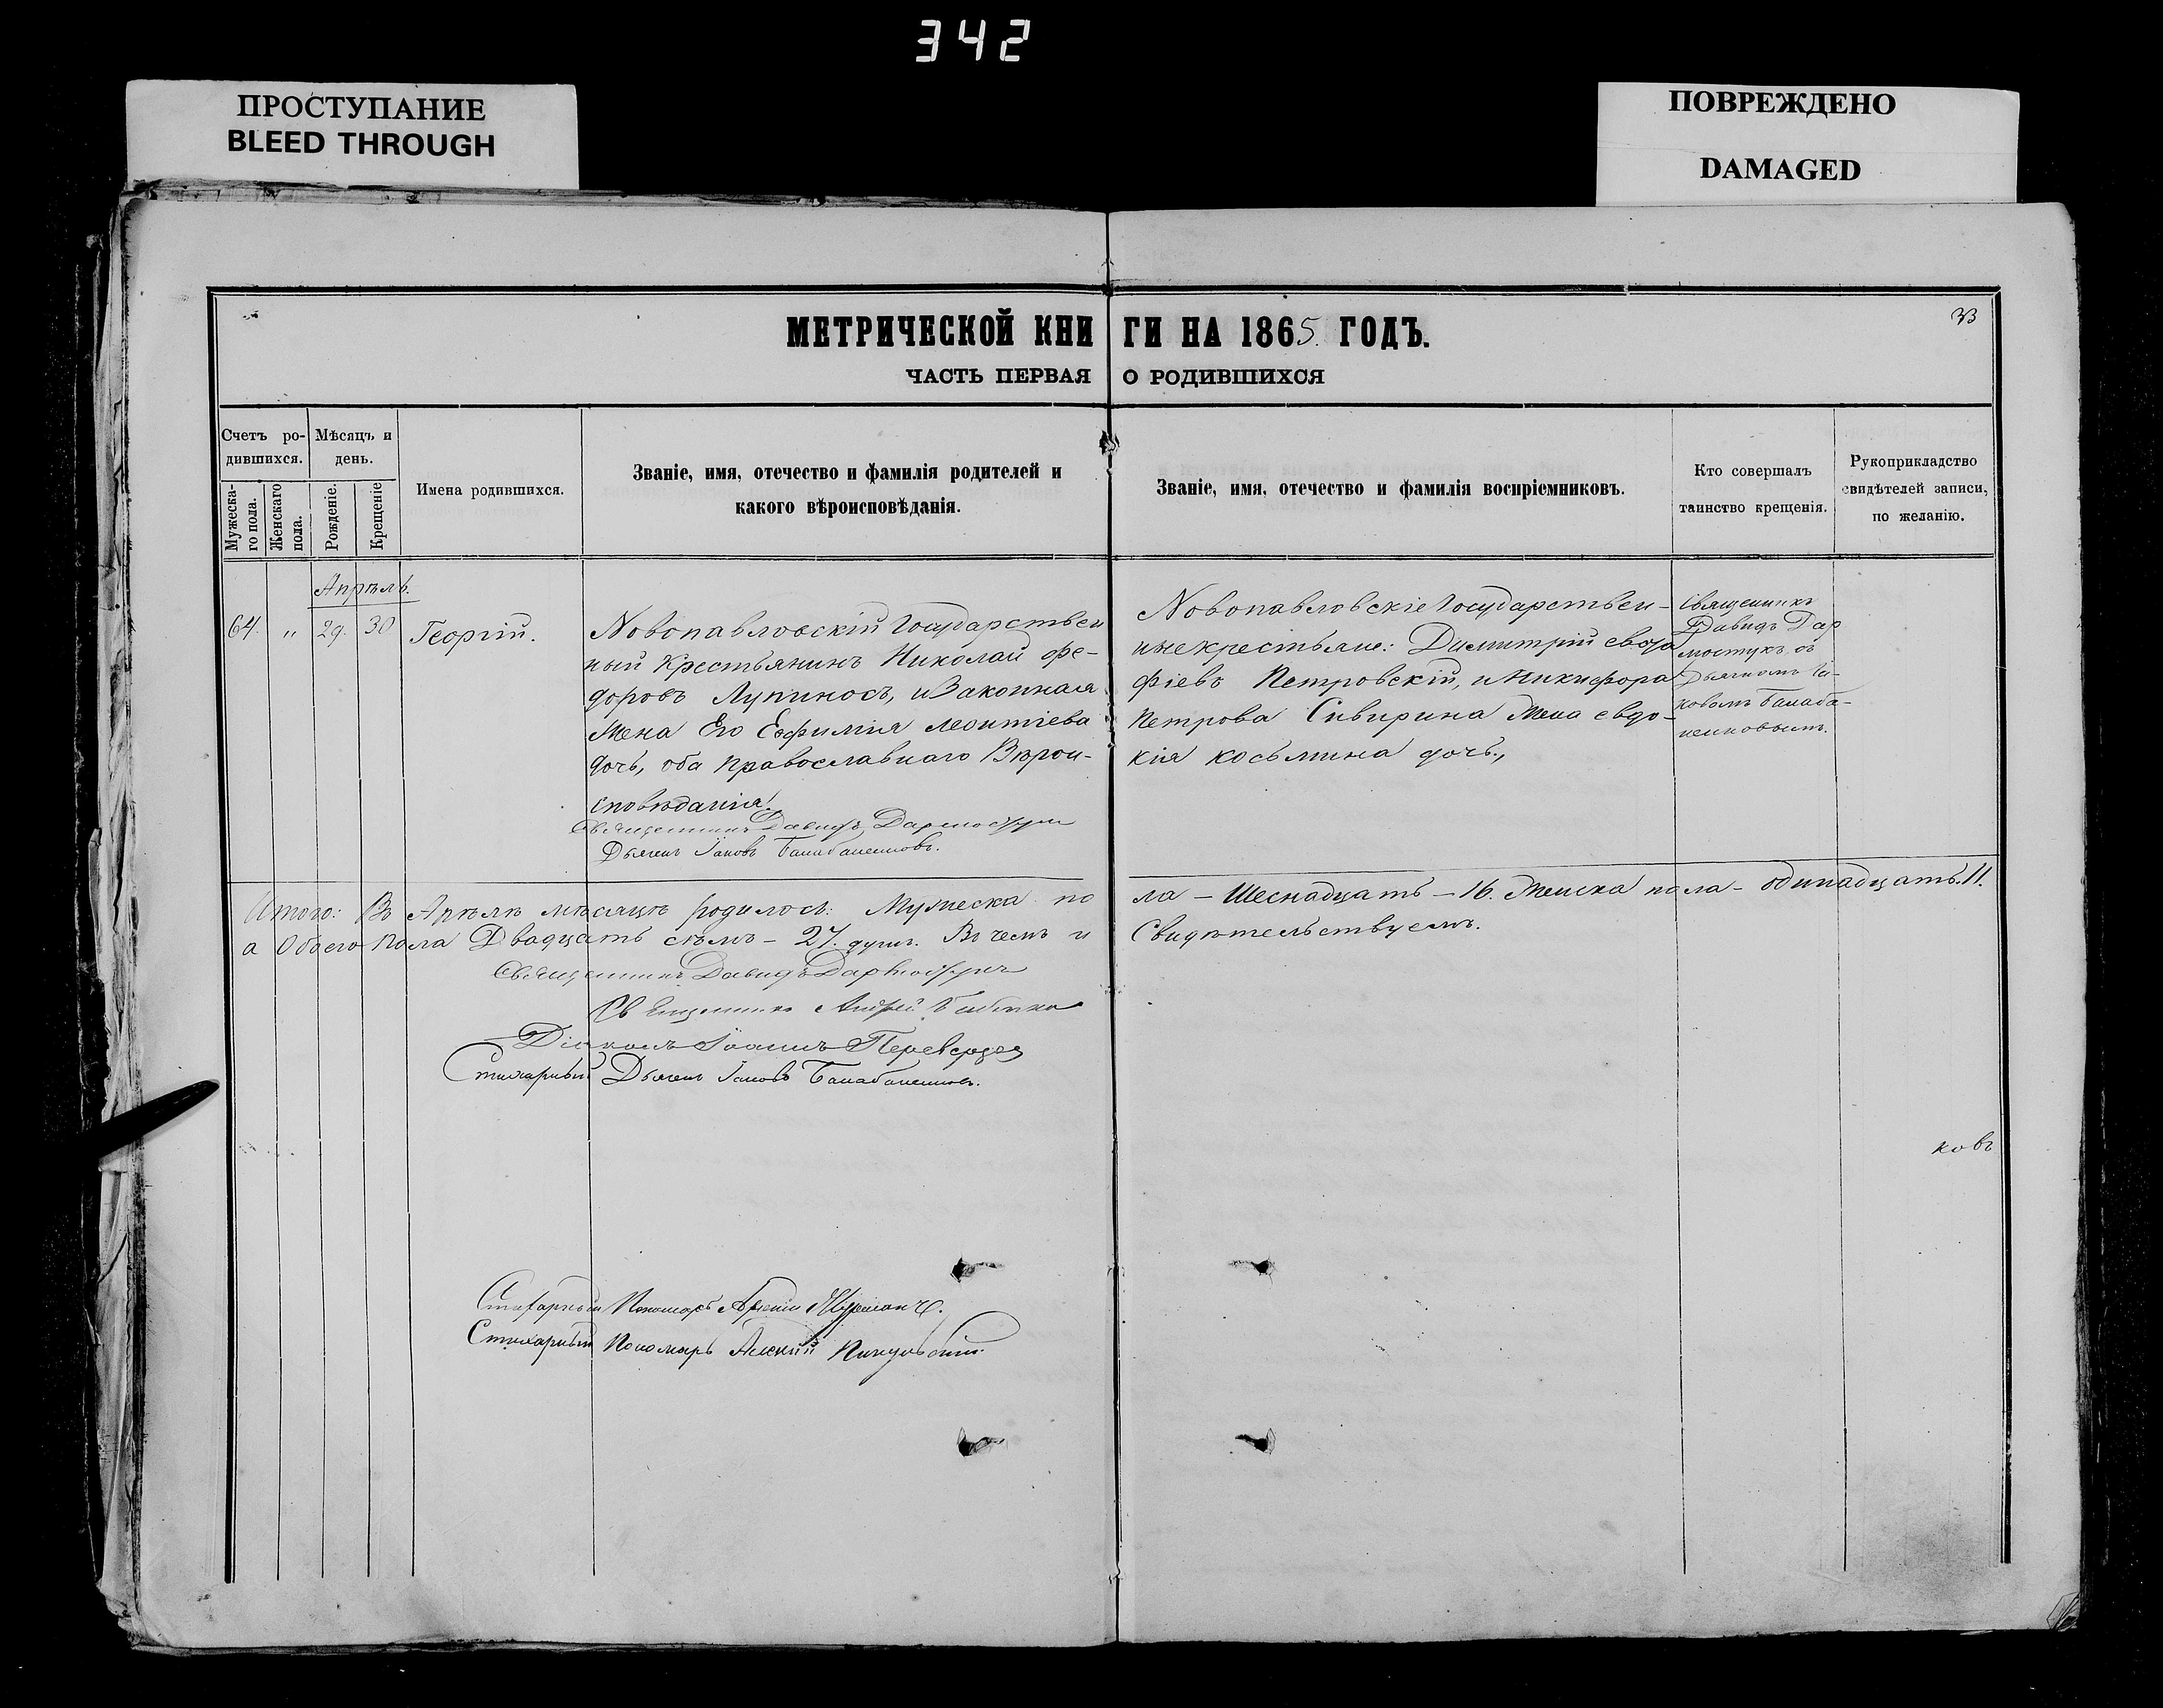 342
ПРОСТУПАНИЕ
BLEED THROUGH
ПОВРЕЖДЕНО
DAMAGED
33
МЕТРИЧЕСКОЙ КНИГИ НА 1865 ГОДЪ.
ЧАСТЬ ПЕРВАЯ О РОДИВШИХСЯ
Счетъ ро-
дившихся.
Мужеска-
го пола.
Женскаго
пола.
Мѣсяцъ и
день.
Рожденіе.
Крещеніе
Имена родившихся.
Званіе, имя, отечество и фамилія родителей и
какого вѣроисповѣданія.
Званіе, имя, отечество и фамилія воспріемниковъ.
Кто совершалъ
таинство крещенія.
Рукоприкладство
свидѣтелей записи,
по желанію.
Апрѣль.
64. " 29. 30 Георгій.
Новопавловскій Государствен
ный Крестьянинъ Николай Фе-
доровъ Лупиносъ, и Законная
Жена Его Евфимія Леонтіева
дочь, оба Православнаго Вѣрои-
сповѣданія.
Священникъ Давидъ
Дьячекъ Іаковъ
Новопавловскіе Государствен-
ные крестьяне: Димитрій
фіевъ Петровскій, и Никифора
Петрова Сивирина Жена Евдо-
кія Косьмина дочь.,
Священникъ
Давидъ Дар
съ
Дьячкомъ Іа-
ковомъ
Итого: Въ Апрѣлѣ мѣсяцѣ родилось: Мужеска пола – Шеснадцать – 16. Женска пола – одинадцать. 11.
а Обоего Пола Двадцать сѣмь – 27. душъ. Въ чемъ и Свидѣтельствуемъ.
Священникъ Давидъ
Священникъ Андрей
Діаконъ Іоаннъ
Стихарный Дьячекъ Іаковъ
ковъ
Стихарный Пономарь
Стихарный Пономарь Алексій